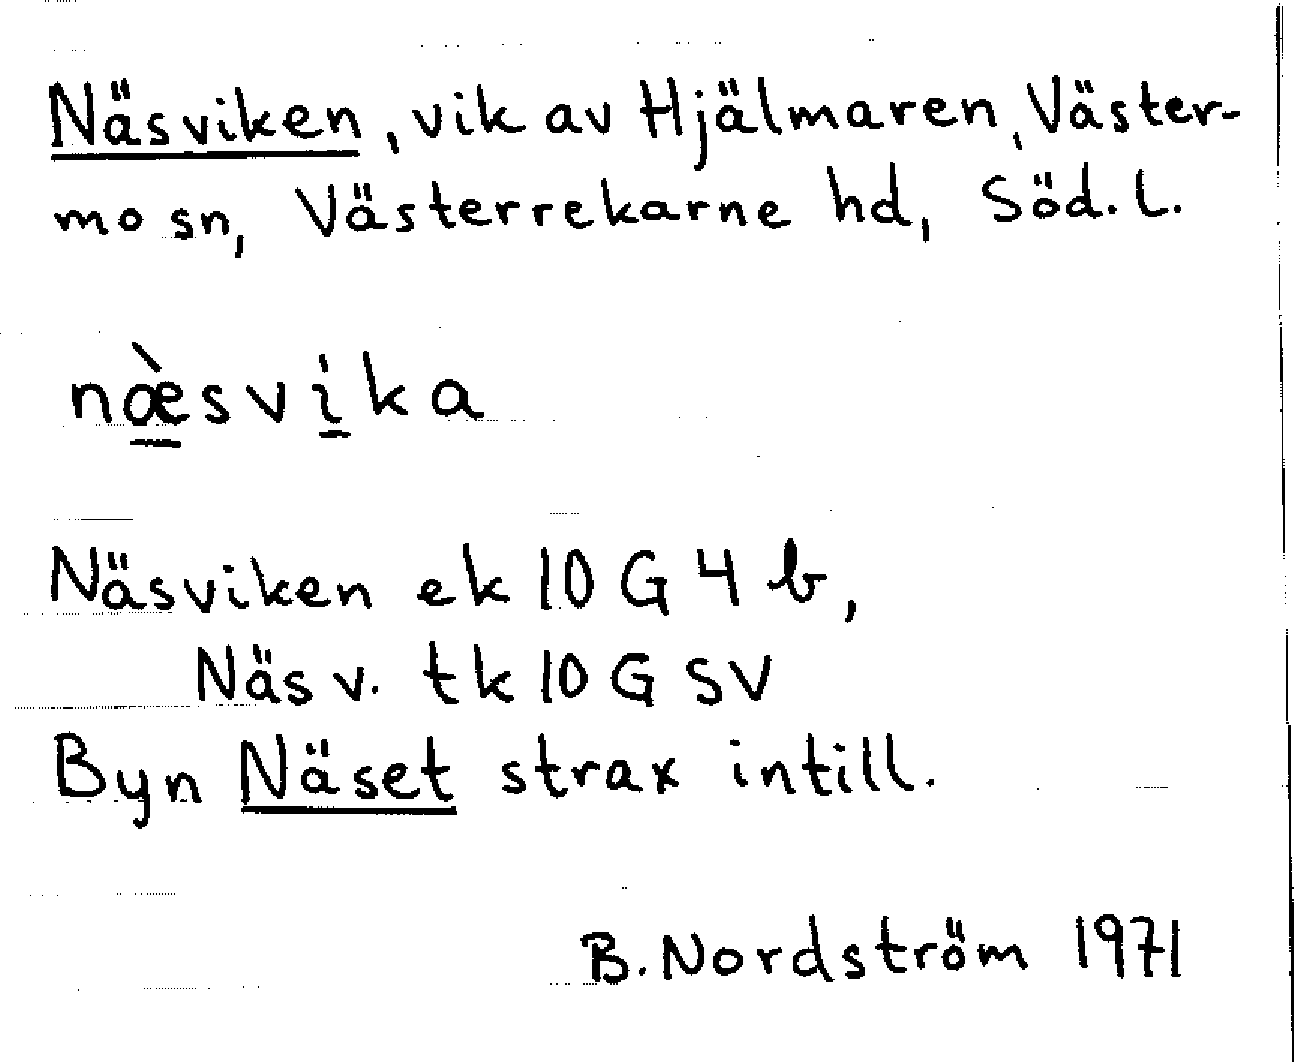 Näsviken, vik av Hjälmaren, Väster-
mo sn, Västerrekarne hd, Söd. l.
næ̱̀svi̱ka
Näsviken ek 10 G 4 b,
Näsv. tk 10 G SV
Byn Näset strax intill.
B. Nordström 1971